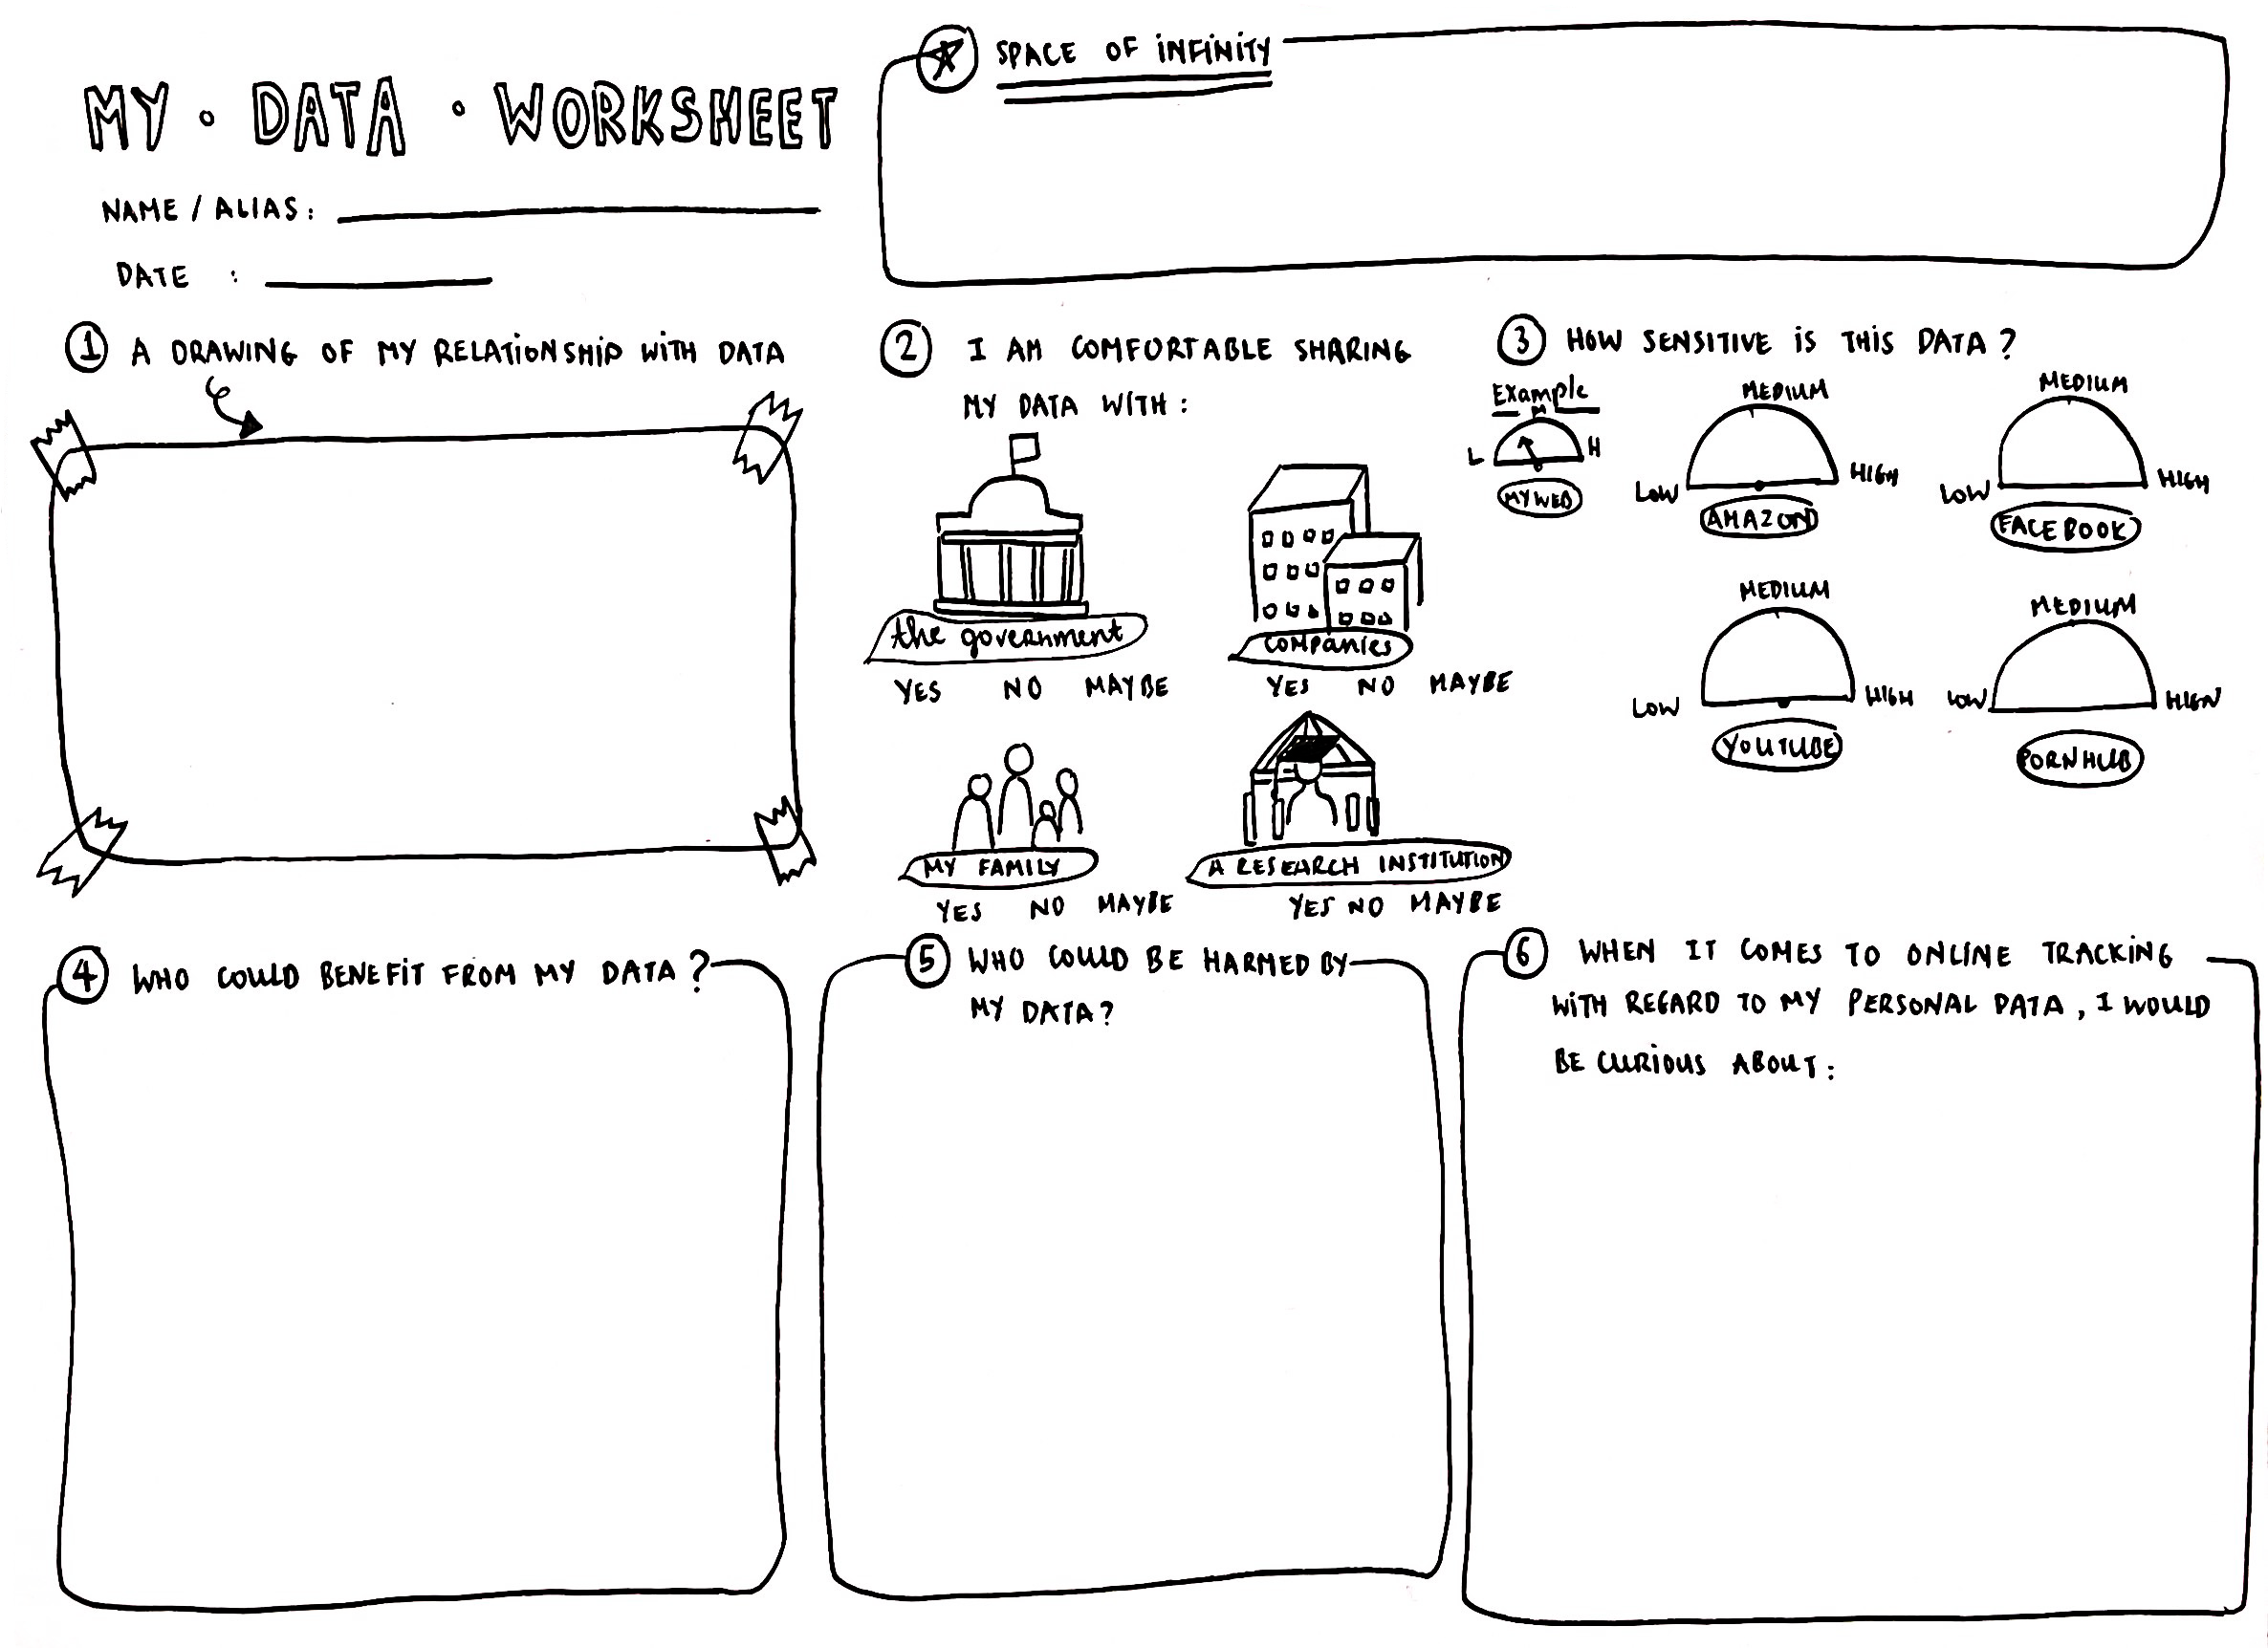 MY · DATA · WORKSHEET
NAME / ALIAS:
DATE :
SPACE OF INFINITY
1 A DRAWING OF MY RELATIONSHIP WITH DATA
2 I AM COMFORTABLE SHARING
MY DATA WITH:
the government
YES NO MAYBE
COMPANIES
YES NO MAYBE
MY FAMILY
YES NO MAYBE
A RESEARCH INSTITUTION
YES NO MAYBE
3 HOW SENSITIVE IS THIS DATA?
Example
M
L H
MY WEB
MEDIUM
LOW HIGH
AMAZON
MEDIUM
LOW HIGH
FACEBOOK
MEDIUM
LOW HIGH
YOUTUBE
MEDIUM
LOW HIGH
PORNHUB
4 WHO COULD BENEFIT FROM MY DATA?
5 WHO COULD BE HARMED BY
MY DATA?
6 WHEN IT COMES TO ONLINE TRACKING
WITH REGARD TO MY PERSONAL DATA, I WOULD
BE CURIOUS ABOUT: